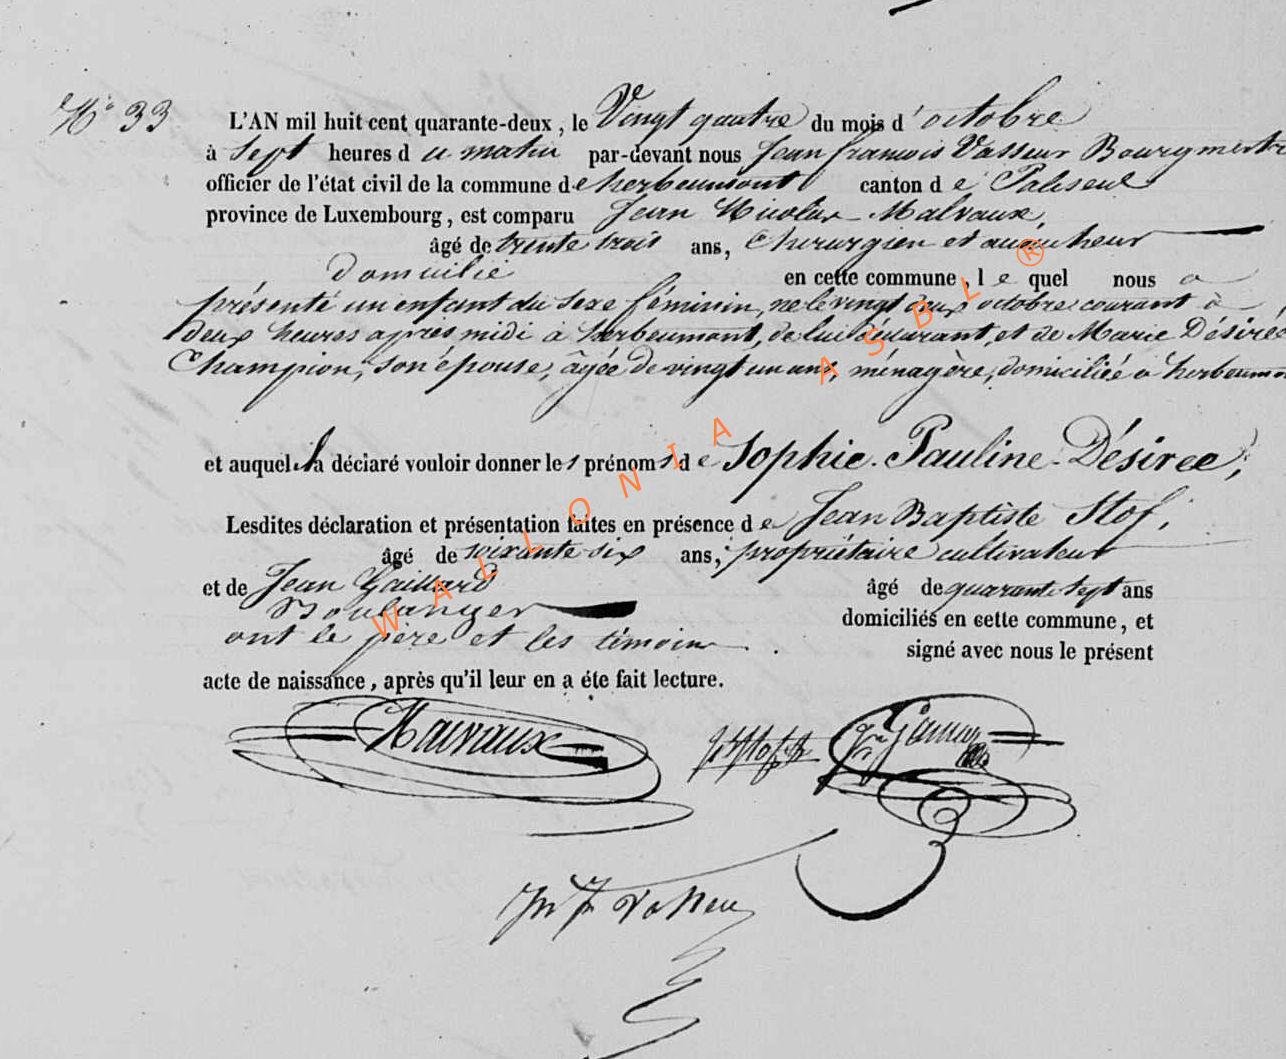 N° 33
L'AN mil huit cent quarante-deux, le Vingt quatre du mois d'octobre
à Sept heures du matin par-devant nous Jean françois Vasseur Bourgmestre
officier de l'état civil de la commune de herbeumont canton de Paliseul
province de Luxembourg, est comparu Jean Nicolas Malvaux,
âgé de trente trois ans, Chirurgien et accoucheur
domicilié en cette commune, lequel nous a
présenté un enfant du sexe féminin, né le vingt deux octobre courant à
deux heures après midi à herbeumont, de lui déclarant, et de Marie Désirée
Champion, son épouse, âgée de vingt un ans, ménagère, domiciliée à herbeumont
et auquel il a déclaré vouloir donner les prénoms de Sophie Pauline Désirée,
Lesdites déclaration et présentation faites en présence de Jean Baptiste Stof,
âgé de soixante six ans, propriétaire cultivateur
et de Jean Gaillard âgé de quarante sept ans
Boulanger domiciliés en cette commune, et
ont le père et les témoins signé avec nous le présent
acte de naissance, après qu'il leur en a éte fait lecture.
Malvaux
WALLONIA ASBL ®